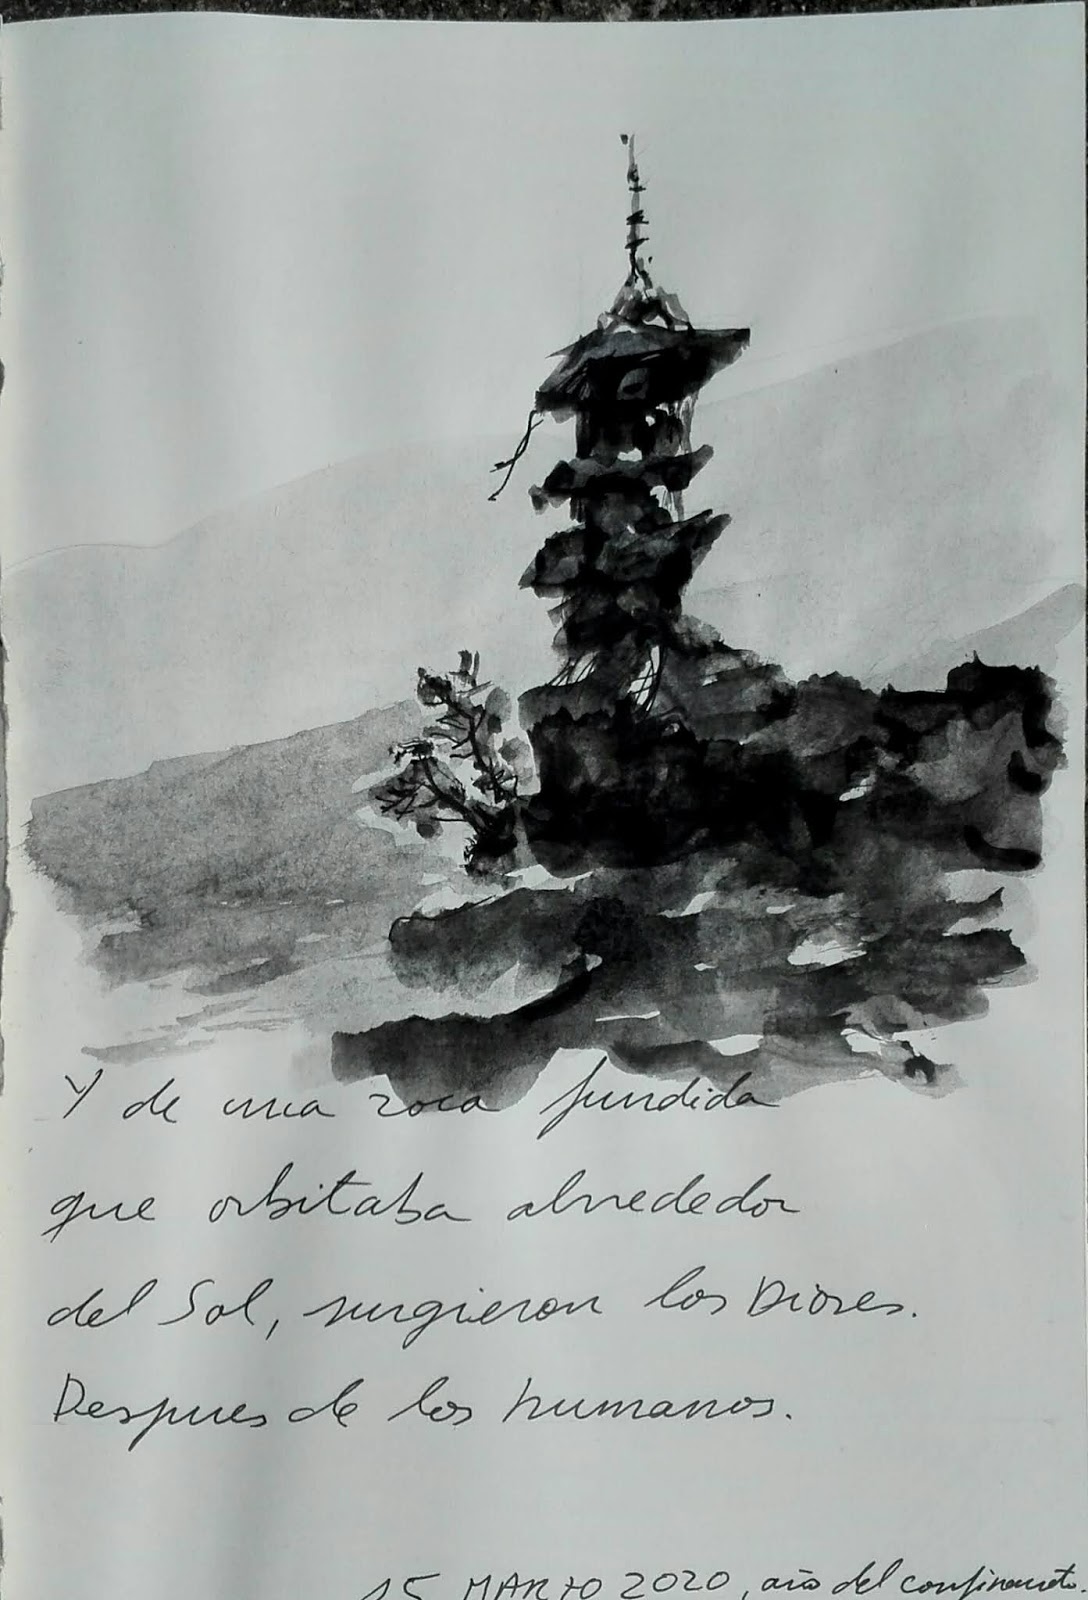 Y de una roca fundida
que orbitaba alrededor
del Sol, surgieron los Dioses.
Despues de los humanos.
15 MARZO 2020, año del confinamiento.